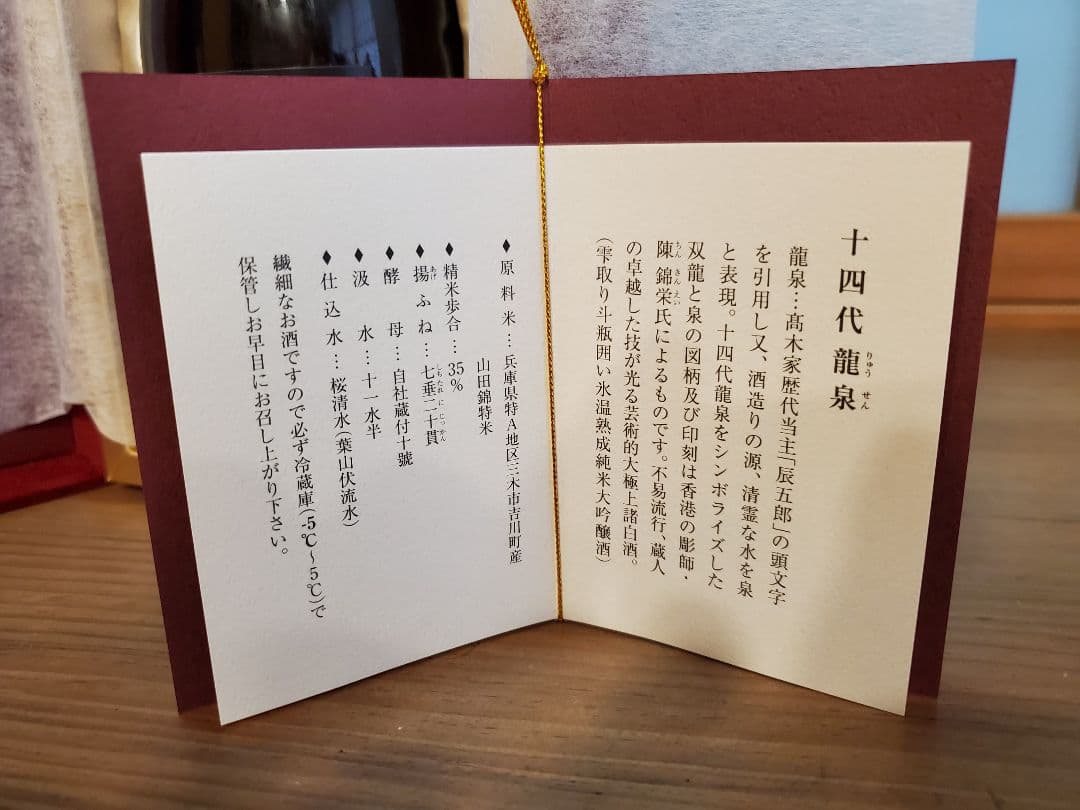 十四代 龍泉
りゅう せん
龍泉…髙木家歴代当主「辰五郎」の頭文字
を引用し又、酒造りの源、清霊な水を泉
と表現。十四代龍泉をシンボライズした
双龍と泉の図柄及び印刻は香港の彫師・
陳 錦栄氏によるものです。不易流行、蔵人
ちん きん えい
の卓越した技が光る芸術的大極上諸白酒。
(雫取り斗瓶囲い氷温熟成純米大吟醸酒)
♦原料米…兵庫県特A地区三木市吉川町産
山田錦特米
♦精米歩合…35%
♦揚ふね…七垂二十貫
あげ
しちたれ に じっかん
♦酵母…自社蔵付十號
♦汲水…十一水半
♦仕込水…桜清水(葉山伏流水)
繊細なお酒ですので必ず冷蔵庫(-5℃〜5℃)で
保管しお早目にお召し上がり下さい。